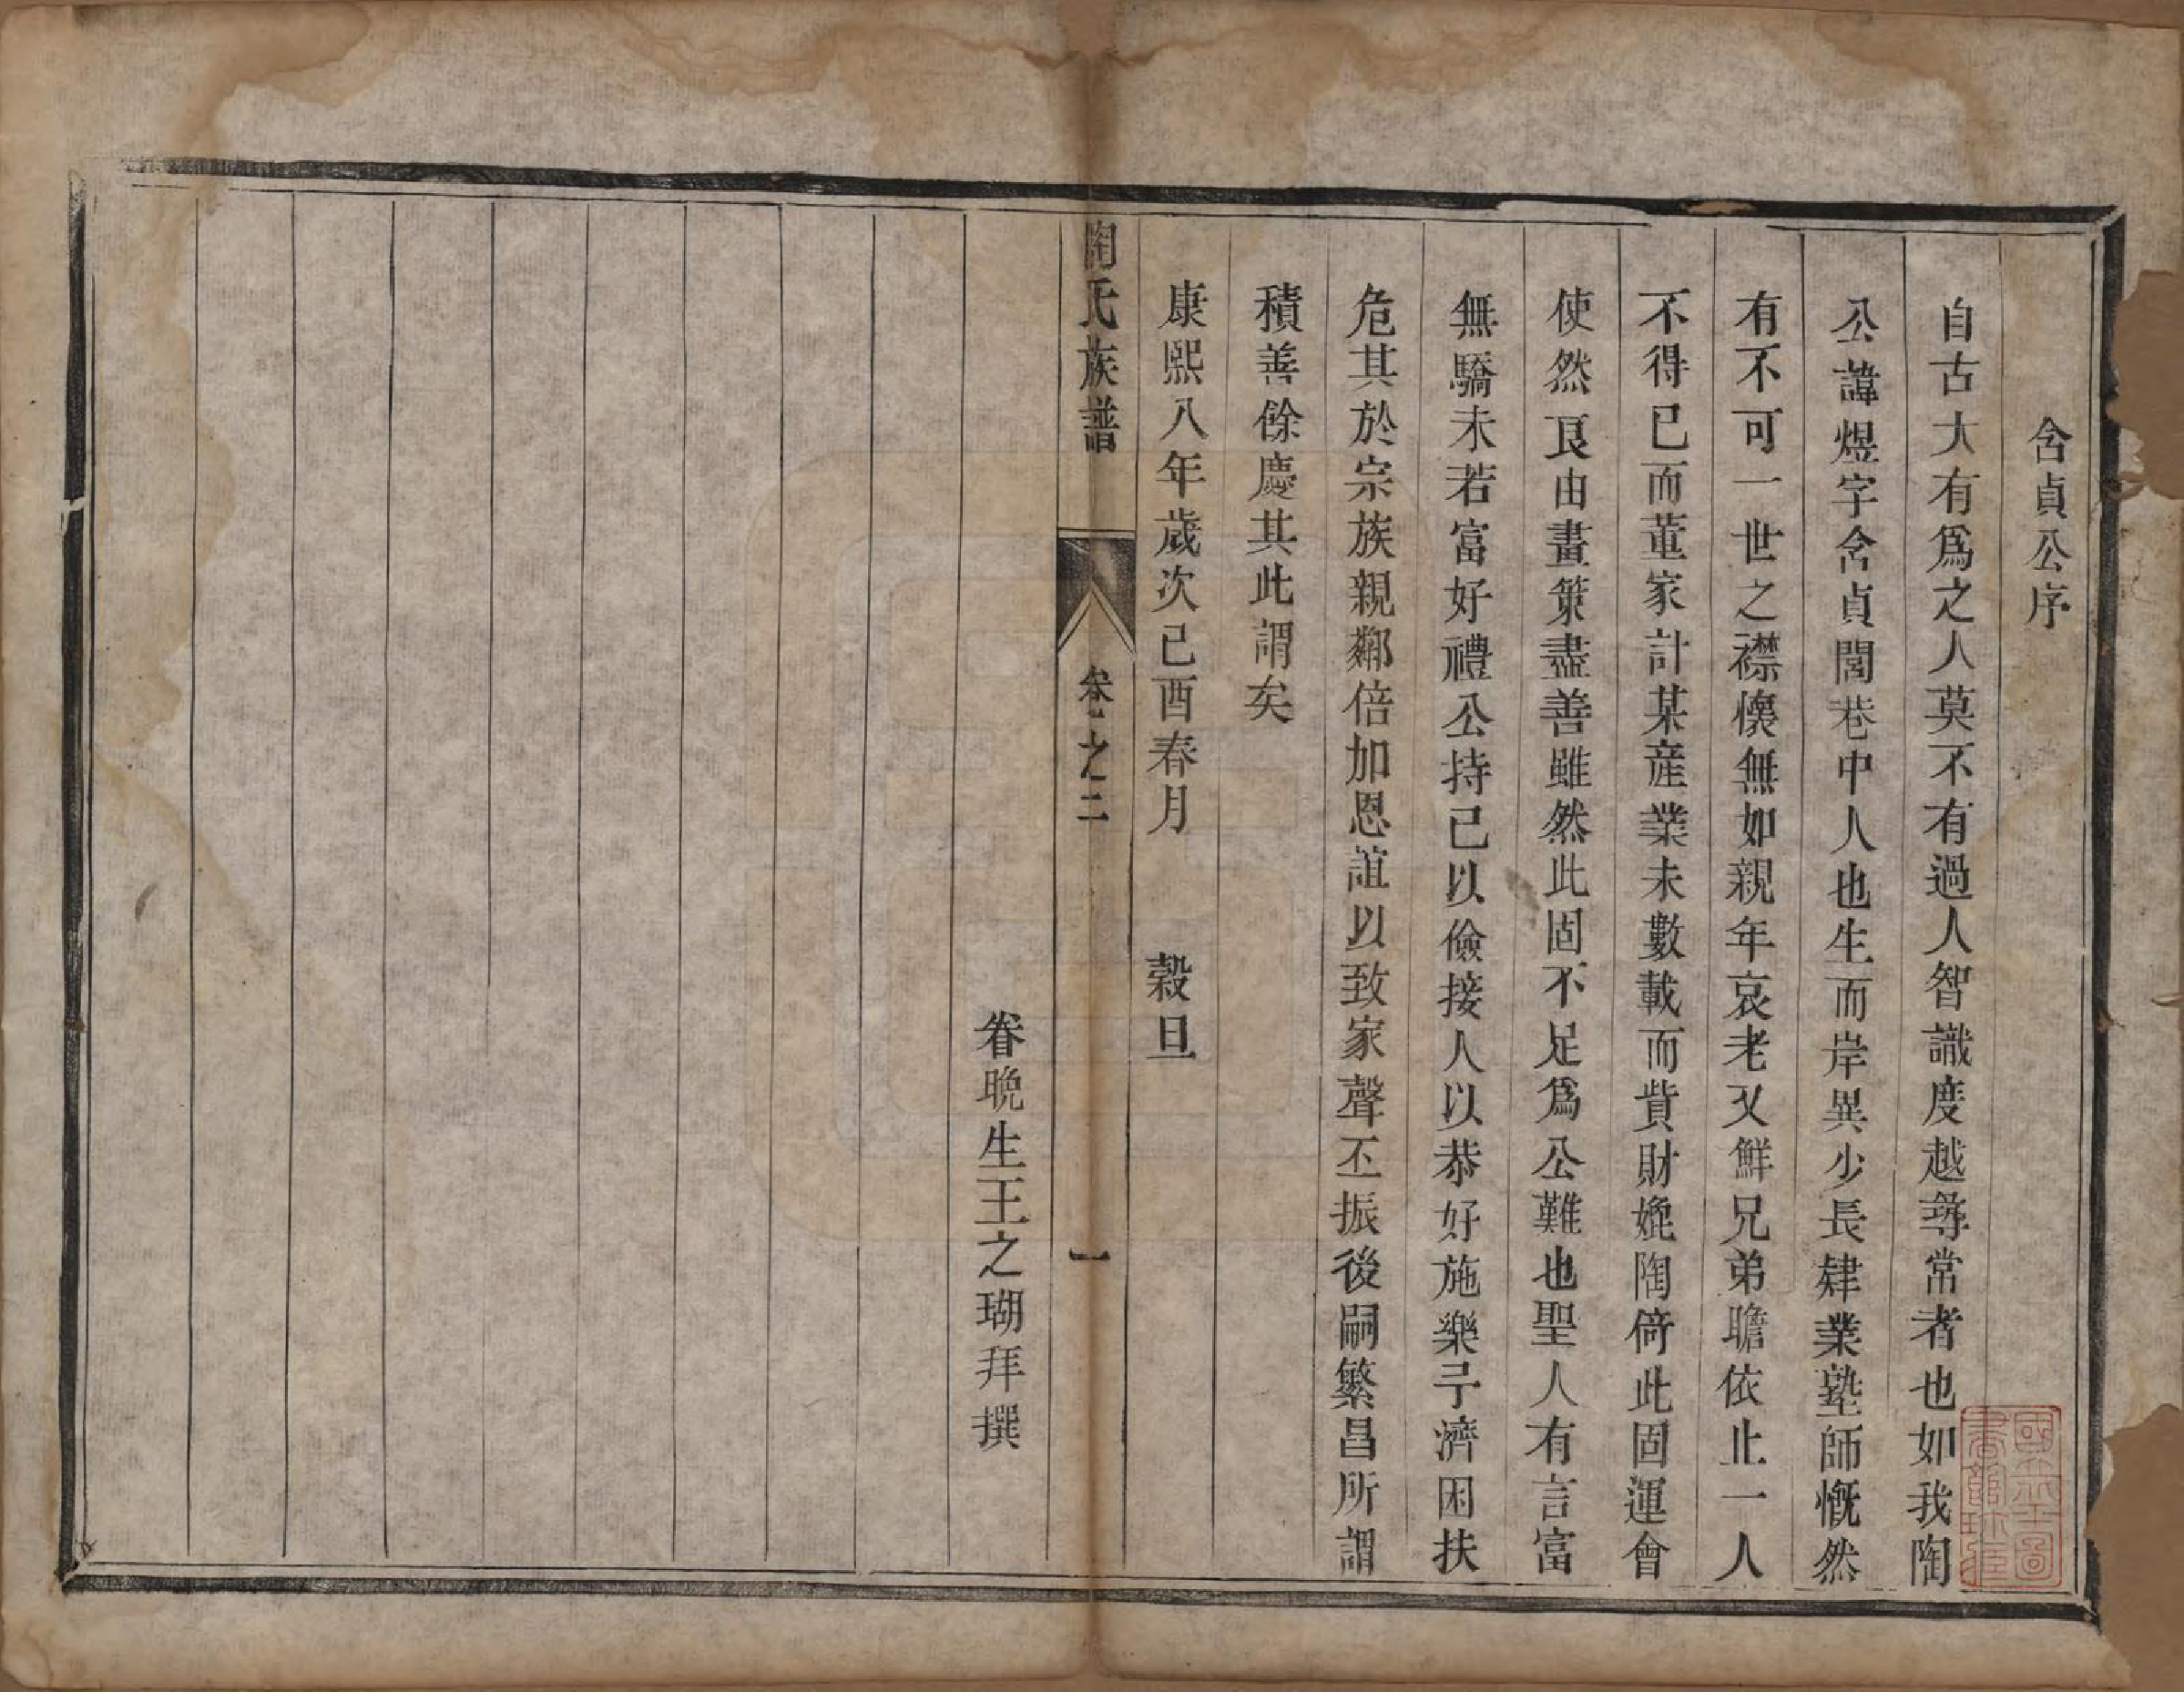 含貞公序
自古大有爲之人莫不有過人智識度越尋常者也如我陶
公諱煜字含貞閭巷中人也生而岸異少長肄業塾師慨然
有不可一世之襟懷無如親年衰老又鮮兄弟瞻依止一人
不得已而董家計某産業未數載而貲財娩陶倚此固運會
使然良由畫策盡善雖然此固不足爲公難也聖人有言富
無驕未若富好禮公持己以儉接人以恭好施樂予濟困扶
危其於宗族親鄰倍加恩誼以致家聲丕振後嗣繁昌所謂
積善餘慶其此謂矣
康熙八年歲次己酉春月　穀旦
陶氏族譜　卷之二　一
眷晚生王之瑚拜撰
國立北平圖
書館珍藏